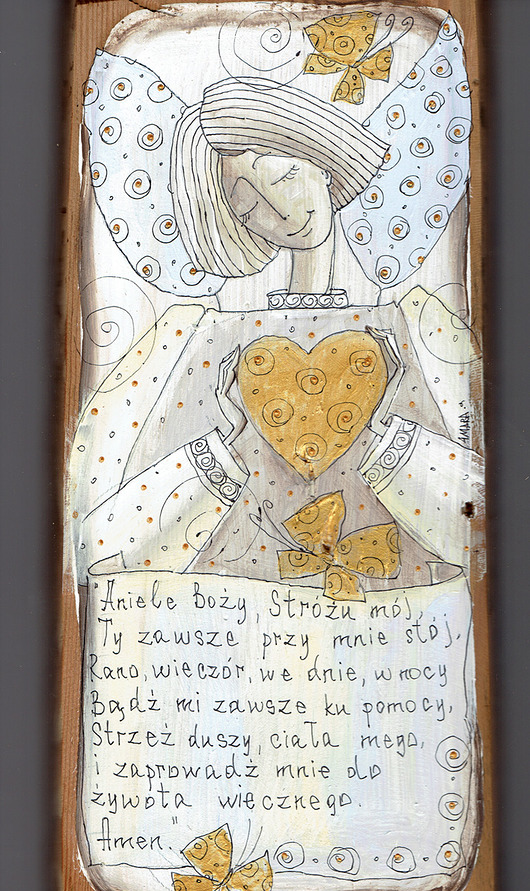 "Aniele Boży, Stróżu mój,
Ty zawsze przy mnie stój.
Rano, wieczór, we dnie, w nocy
Bądź mi zawsze ku pomocy,
Strzeż duszy, ciała mego,
i zaprowadź mnie do
żywota wiecznego.
Amen."